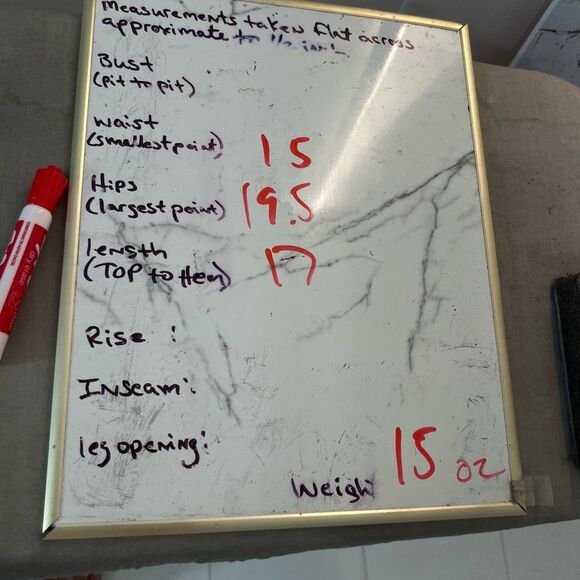 Measurements taken flat across
approximate to
Bust
(pit to pit)
waist
(smallest point) 15
Hips
(largest point) 19.5
length
(TOP to Hem) 17
Rise :
Inseam:
leg opening:
Weigh 15 oz